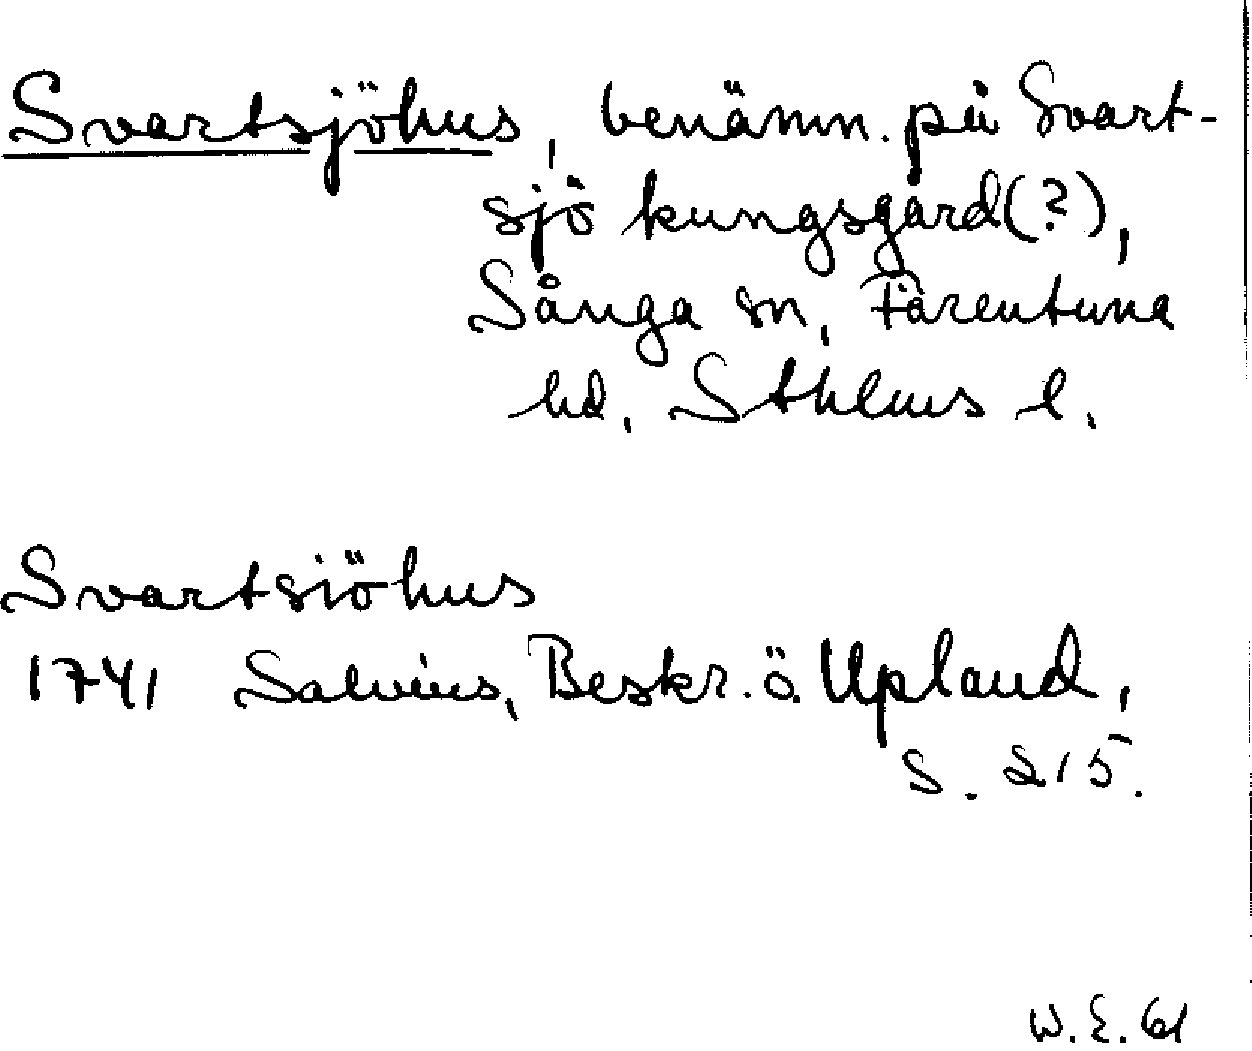 Svartsjöhus, benämn. på Svart-
sjö kungsgård(?),
Sånga sn, Färentuna
hd. Sthlms l.
Svartsiöhus
1741 Salvius, Beskr. ö. Upland,
s. 215.
W. E. 61